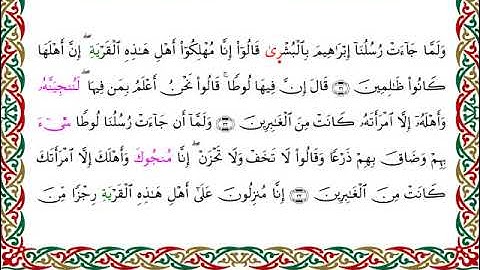 وَلَمَّا جَآءَتْ رُسُلُنَآ إِبْرَٰهِيمَ بِٱلْبُشْرَىٰ قَالُوٓا۟ إِنَّا مُهْلِكُوٓا۟ أَهْلِ هَـٰذِهِ ٱلْقَرْيَةِ ۖ إِنَّ أَهْلَهَا
كَانُوا۟ ظَـٰلِمِينَ ۝٣١ قَالَ إِنَّ فِيهَا لُوطًا ۚ قَالُوا۟ نَحْنُ أَعْلَمُ بِمَن فِيهَا ۖ لَنُنَجِّيَنَّهُۥ
وَأَهْلَهُۥٓ إِلَّا ٱمْرَأَتَهُۥ كَانَتْ مِنَ ٱلْغَـٰبِرِينَ ۝٣٢ وَلَمَّآ أَن جَآءَتْ رُسُلُنَا لُوطًا سِىٓءَ
بِهِمْ وَضَاقَ بِهِمْ ذَرْعًا وَقَالُوا۟ لَا تَخَفْ وَلَا تَحْزَنْ ۖ إِنَّا مُنَجُّوكَ وَأَهْلَكَ إِلَّا ٱمْرَأَتَكَ
كَانَتْ مِنَ ٱلْغَـٰبِرِينَ ۝٣٣ إِنَّا مُنزِلُونَ عَلَىٰٓ أَهْلِ هَـٰذِهِ ٱلْقَرْيَةِ رِجْزًا مِّنَ